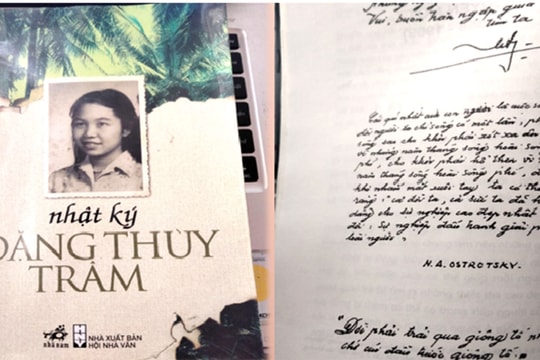 nhật ký
ĐẶNG THÙY
TRÂM
nhã nam
NHÀ XUẤT BẢN
HỘI NHÀ VĂN
Vui, buồn tràn ngập qua
tâm ta
Cái quí nhất của con người là cuộc số
đời người ta chỉ sống có một lần, p
sống sao cho khỏi phải xót xa ân
về những năm tháng sống hoài sống
phí, cho khỏi phải hổ thẹn vì
năm tháng sống hoài sống phí,
khi nhắm mắt xuôi tay ta có th
rằng: cả đời ta, cả sức ta đã
dâng cho sự nghiệp cao đẹp nhất
đời: Sự nghiệp đấu tranh giải ph
loài người.
N.A. OSTROTSKY.
"Đời phải trải qua giông tố nh
chớ cúi đầu trước giông tố.